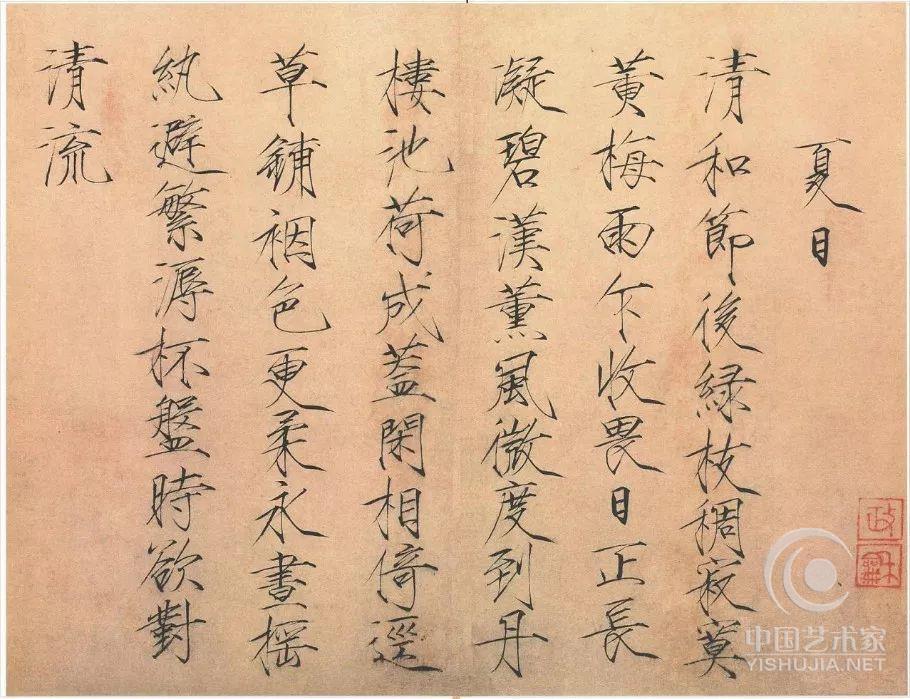 夏日
清和節後緑枝稠寂寞
黄梅雨乍收畏日正長
凝碧漢薰風微度到丹
樓池荷成蓋閑相倚逕
草鋪裀色更柔永晝摇
紈避繁溽杯盤時欲對
清流
政龢
中国艺术家
YISHUJIA.NET